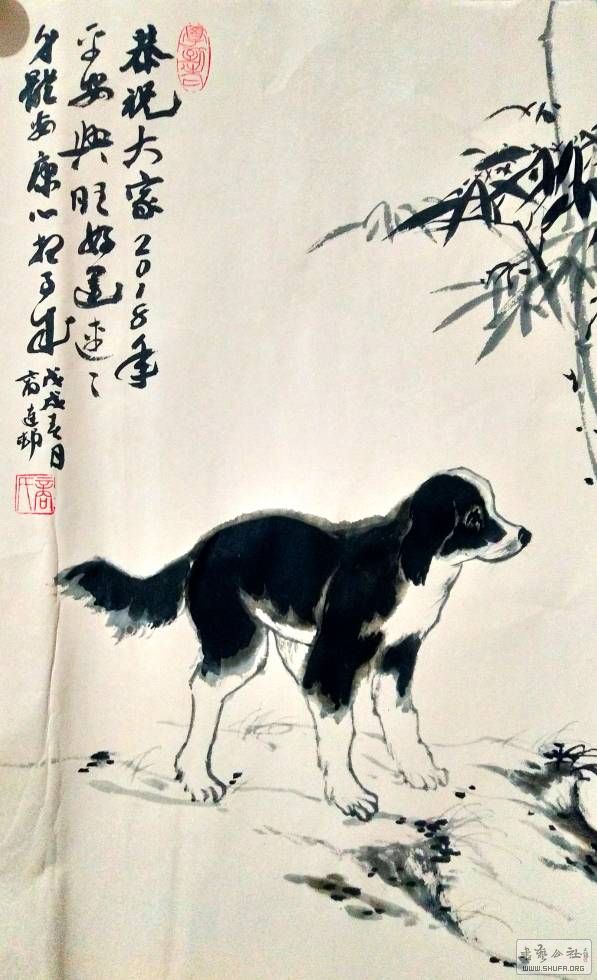 恭祝大家2018年
平安興旺好运连々
身體安康心想事成
戊戌春月
商氏
书艺公社
WWW.SHUFA.ORG